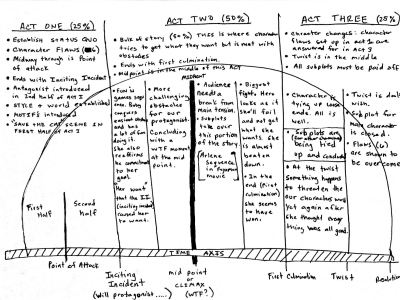 ACT ONE (25%)
• Establish STATUS QUO
• Character Flaws (6)
• Midway through is Point
of attack
• Ends with Inciting Incident
• Antagonist introduced
in 2nd Half of Act I
• STYLE & world established
• MOTIFS introduced
• "SAVE the CAT" SCENE IN
FIRST HALF of ACT I
First
Half
Second
half
ACT TWO (50%)
• Bulk of story (50%) THIS is where character
tries to get what they want but is met with
obstacles
• Ends with first culmination.
• Midpoint is in the middle of this ACT
MIDPOINT
• Fun &
games
• More
challenging
obstacle for
our protagonist.
Concluding
with a
WTF moment
AT the mid
point.
and has
a lot of fun
doing it.
She also
reaffirms
her commitment
to her
goal.
Her want
that the II
(inciting incident)
caused her
to want.
• Audience
needs a
break from
main tension.
• Subplots
take over
this portion
of the story.
• Biggest
fights. Hero
looks as if
she'll fail
and not get
what she
wants. She
is almost
beaten
down.
• In the
end (first
culmination)
she seems
to have
won.
ACT THREE (25%)
• character changes: character
flaws set up in act 1 are
answered for in act 3
• Twist is in the middle
• All subplots must be paid off
• Character is
tying up loose
ends. All is
well.
• Subplots are
being tied
up and concluded
• At the twist
something happens
to threaten the
our characters want
yet again after
she thought every
thing was all good.
• Twist is dealt
with.
• Subplot for
main character
is closed.
• Flaws (6)
are shown to
be overcome
TIME AXIS
Point of Attack
Inciting
Incident
(Will protagonist.....)
mid point
or
CLIMAX
(WTF?)
First Culmination
Twist
Resolution